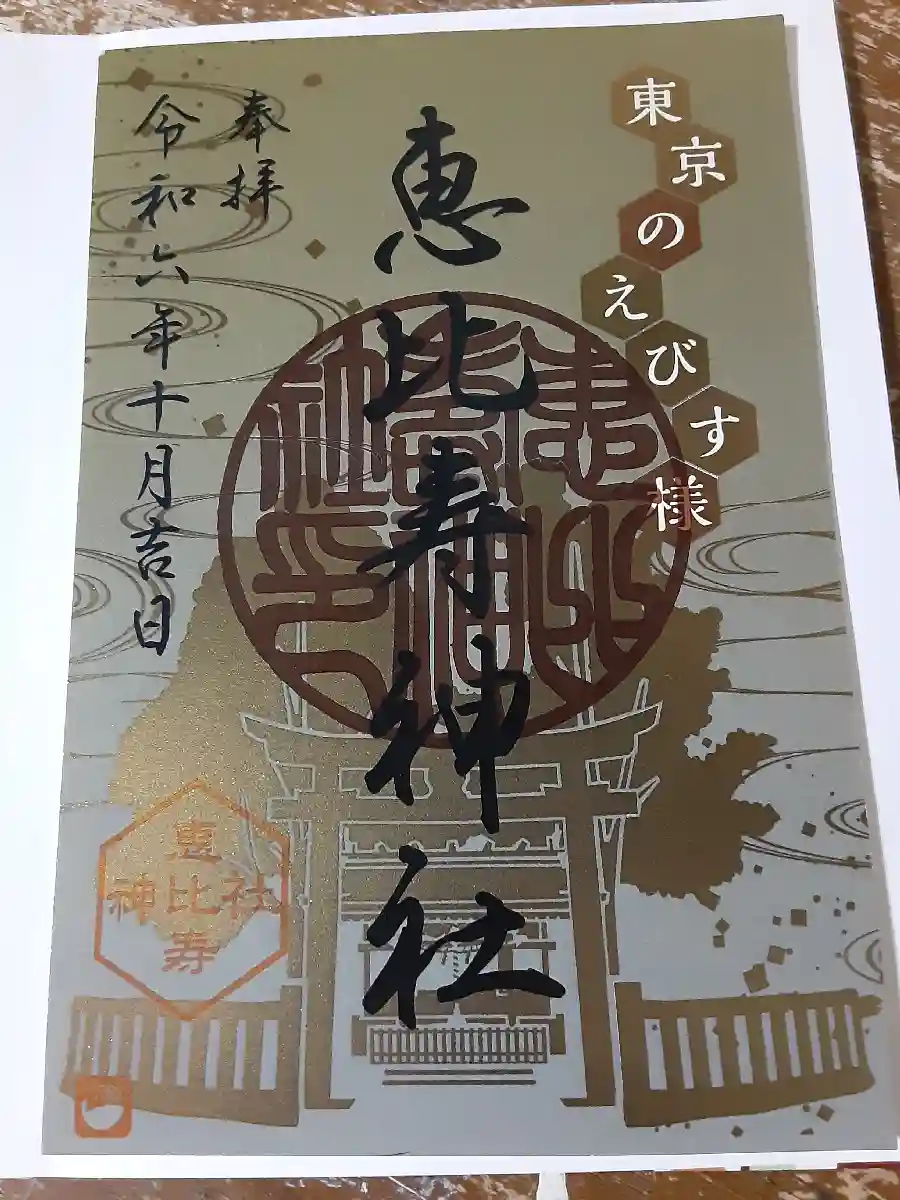 東京のえびす様
恵比寿神社
奉拝
令和六年十月吉日
恵比寿
神社